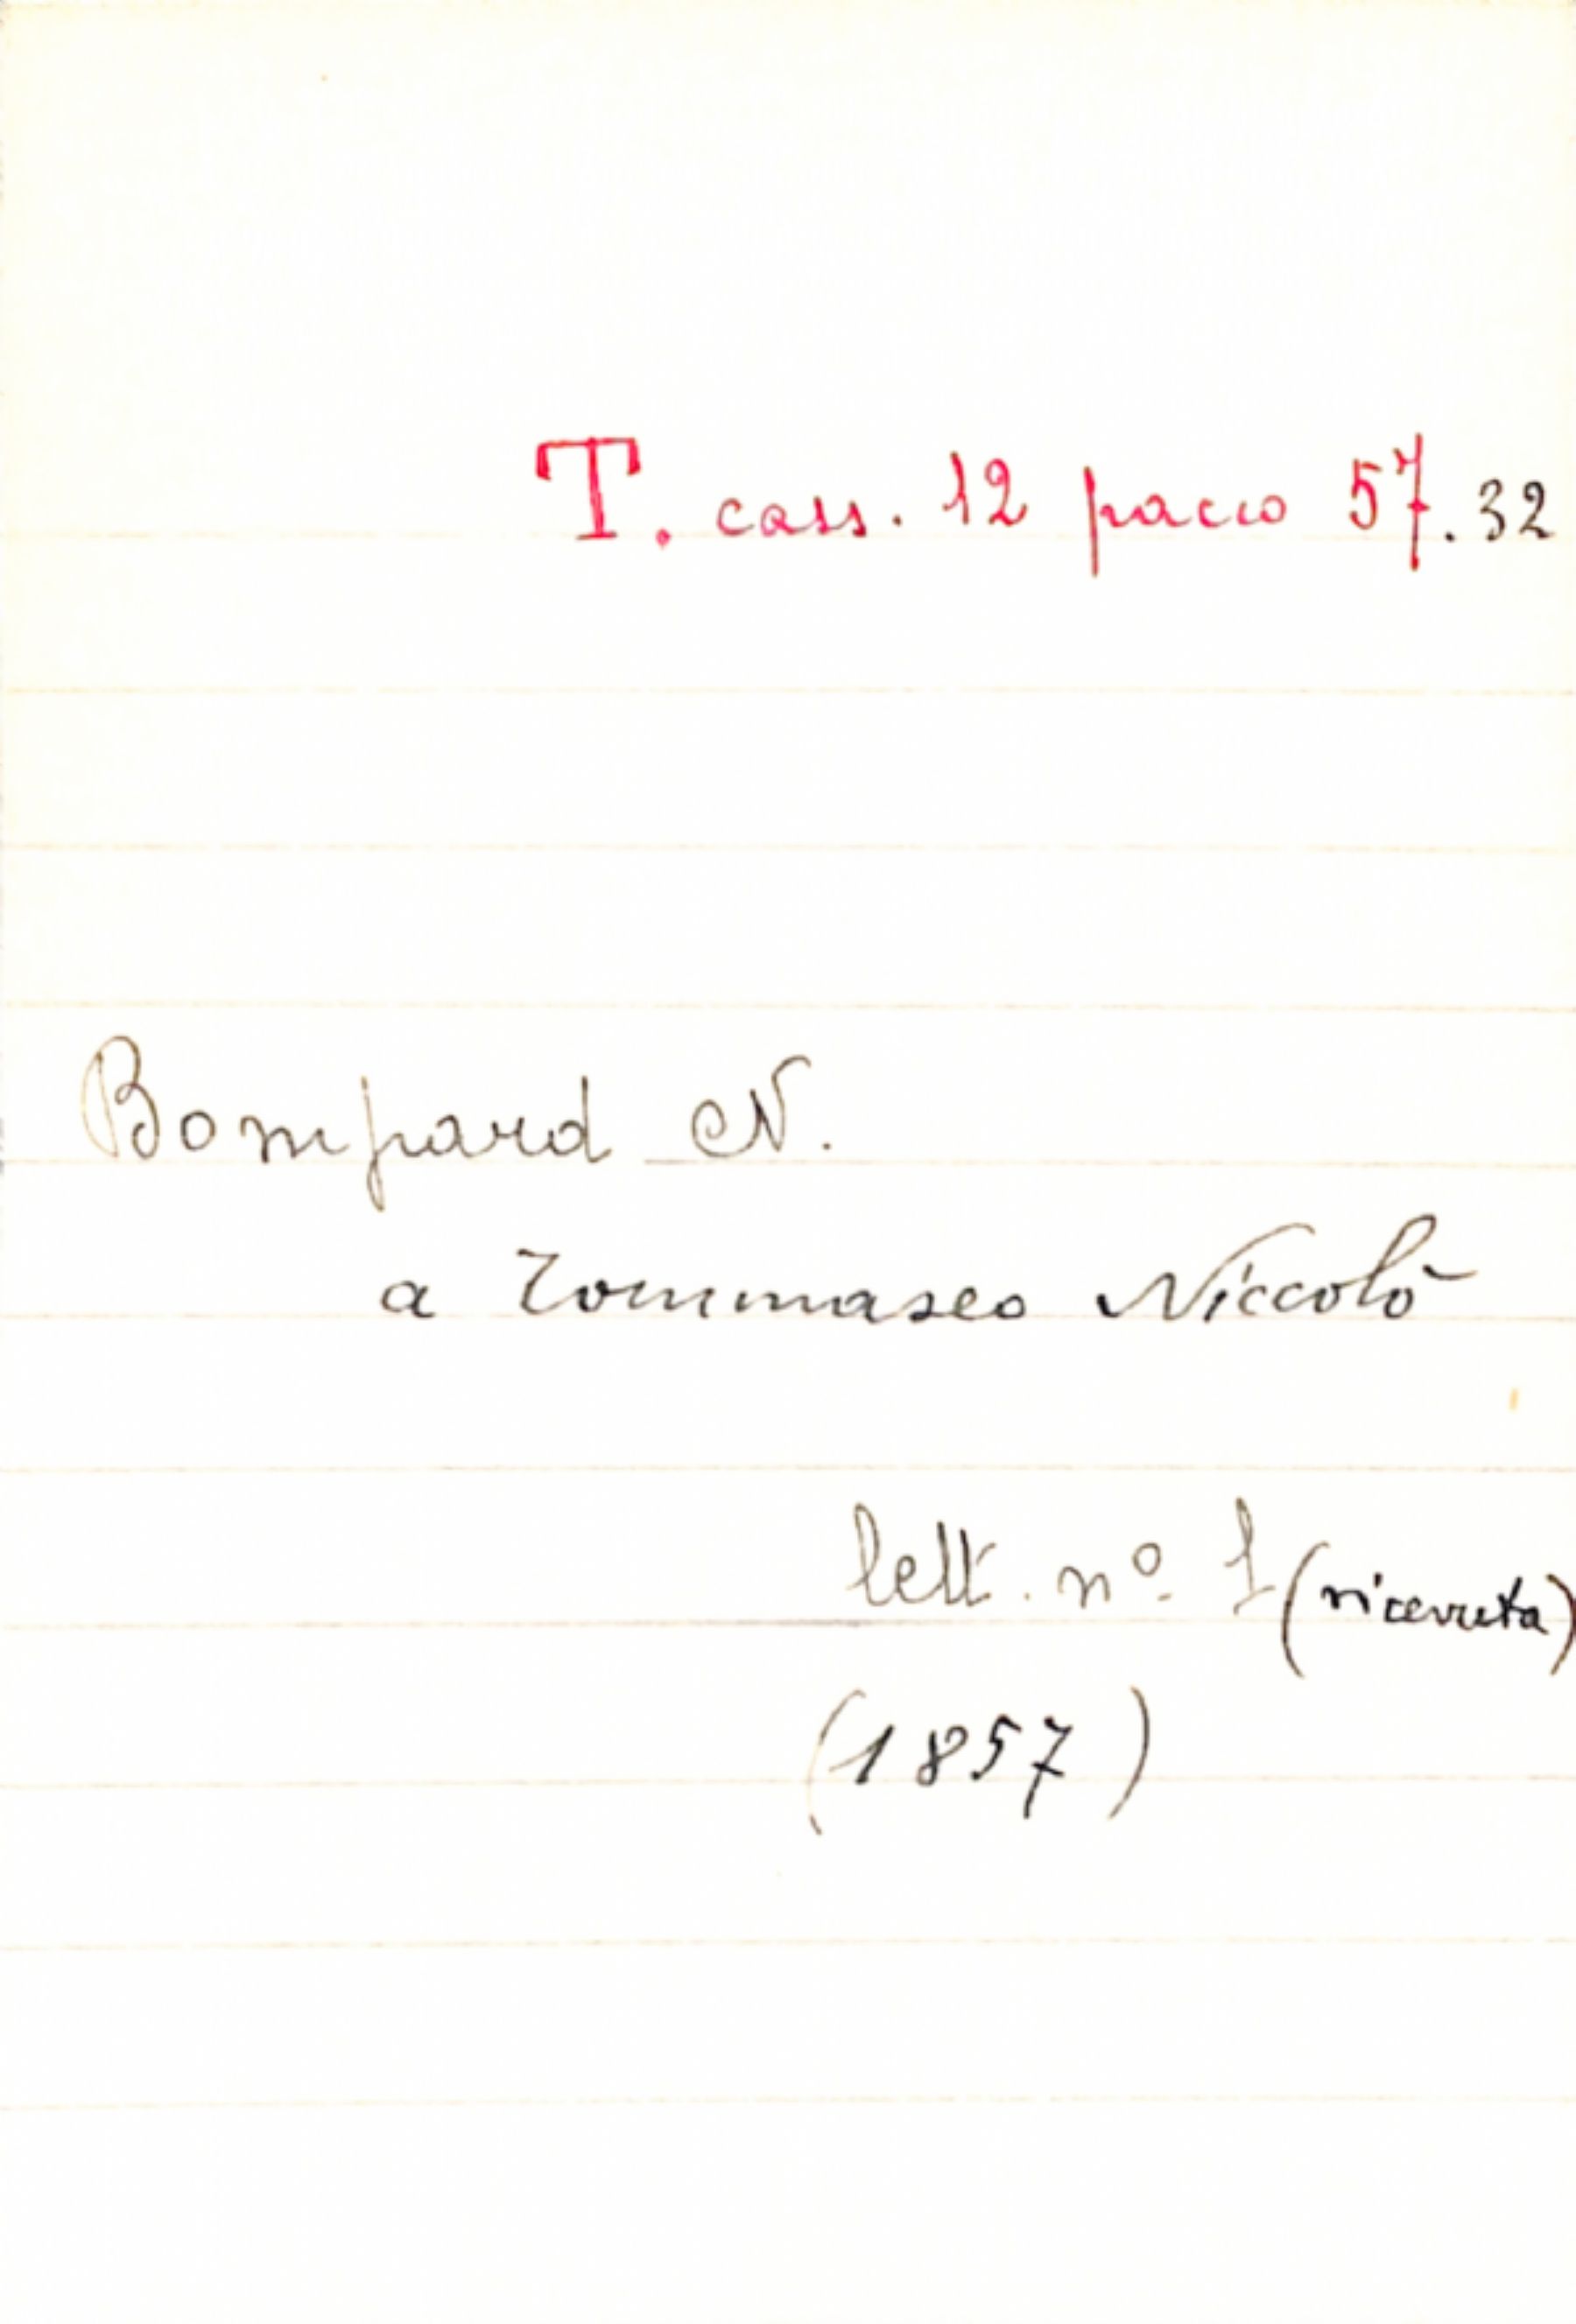 T. cass. 12 pacco 57.32
Bompard N.
a Tommaseo Niccolò
lett. nº 1 (ricevuta)
(1857)